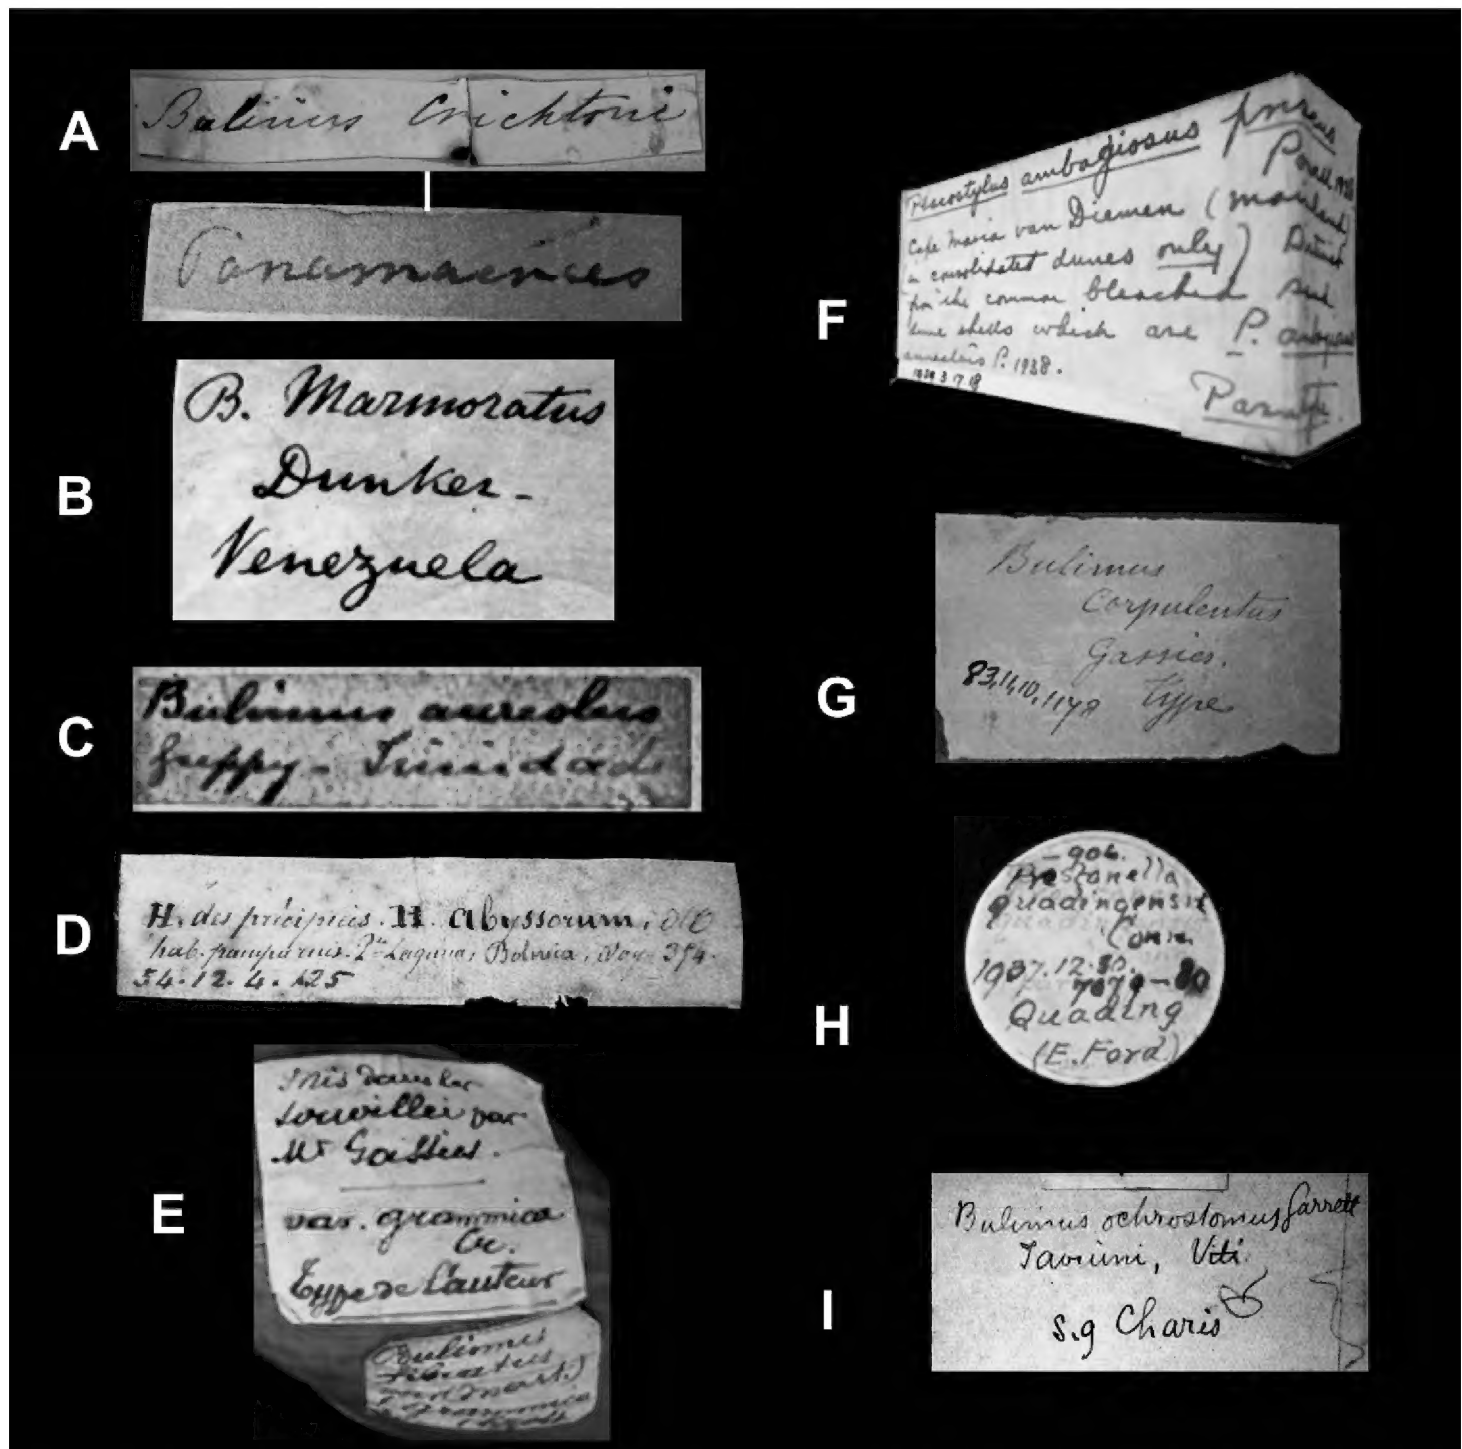 A
Bulinus Crichtoni
Panamaensis
B
B. Marmoratus
Dunker -
Venezuela
C
Bulimus aureolus
Guppy - Trinidad
D
H. des précipices. H. Abyssorum, d'O
hab. pampa ruis. Laguna, Bolivia, Voy. 354.
54.12.4.125
E
Mis dans les
Souvillei par
Mr Gassies.
var. grammica
Cr.
Type de l'auteur
Bulimus
fibratus
grammica
F
Placostylus ambagiosus priscus
Powell 1938
Cape Maria van Diemen (mainland
in consolidated dunes only) Distinct
from the common bleached sub
dune shells which are P. ambagiosus
annectens P. 1938.
Paratype.
G
Bulimus
Corpulentus
Gassies.
83.11.10.1178 Type
H
- 906.
Prestonella
quadingensis
Conn.
1937.12.30.
7879-80
Quading
(E. Ford)
I
Bulimus ochrostomus Garrett
Taviuni, Viti
s.g Charis